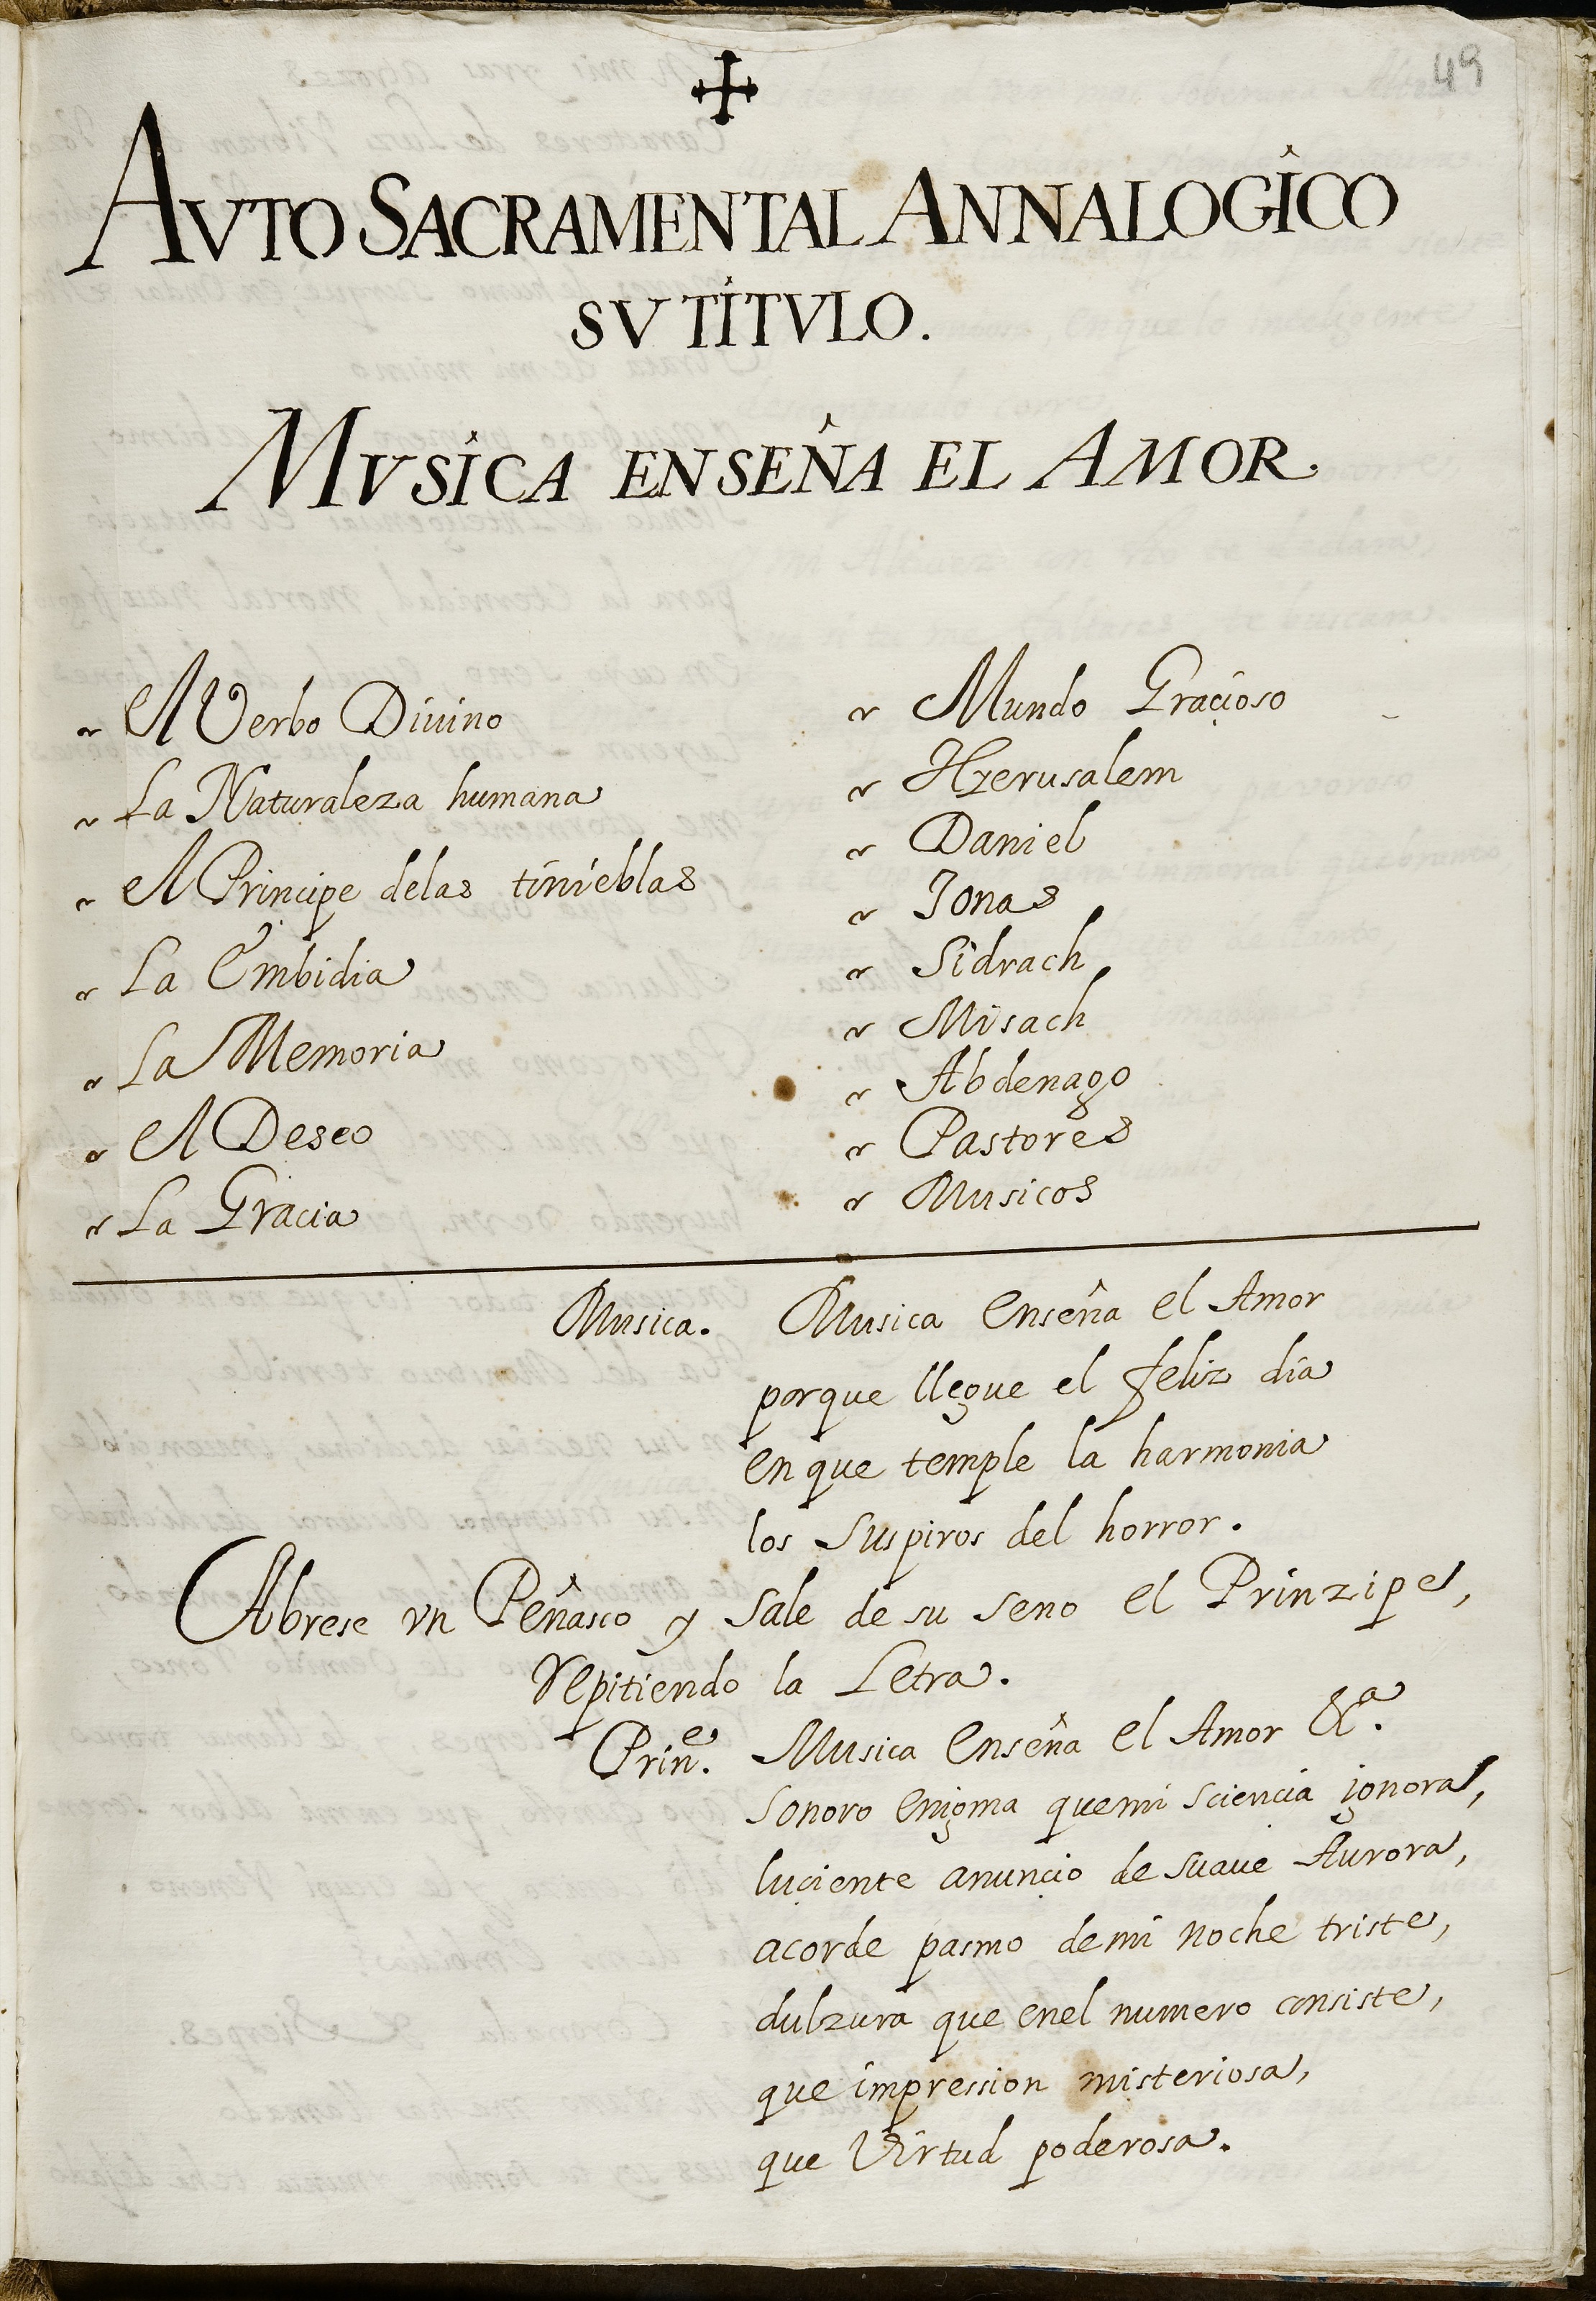 49
AVTO SACRAMENTAL ANNALOGICO
SV TITVLO.
MVSICA ENSEÑA EL AMOR.
El Verbo Diuino
La Naturaleza humana
El Principe delas tinieblas
La Embidia
La Memoria
El Deseo
La Gracia
Mundo Gracioso
Hierusalem
Daniel
Jonas
Sidrach
Misach
Abdenago
Pastores
Musicos
Musica. Musica Enseña el Amor
porque llegue el feliz dia
en que temple la harmonia
los suspiros del horror.
Abrese vn Peñasco y sale de su seno el Prinzipe,
repitiendo la Letra.
Prin.e Musica Enseña el Amor &a.
sonoro enigma quemi sciencia ignora,
luciente anuncio de suaue Aurora,
acorde pasmo demi noche triste,
dulzura que enel numero consiste,
que impression misteriosa,
que Virtud poderosa.